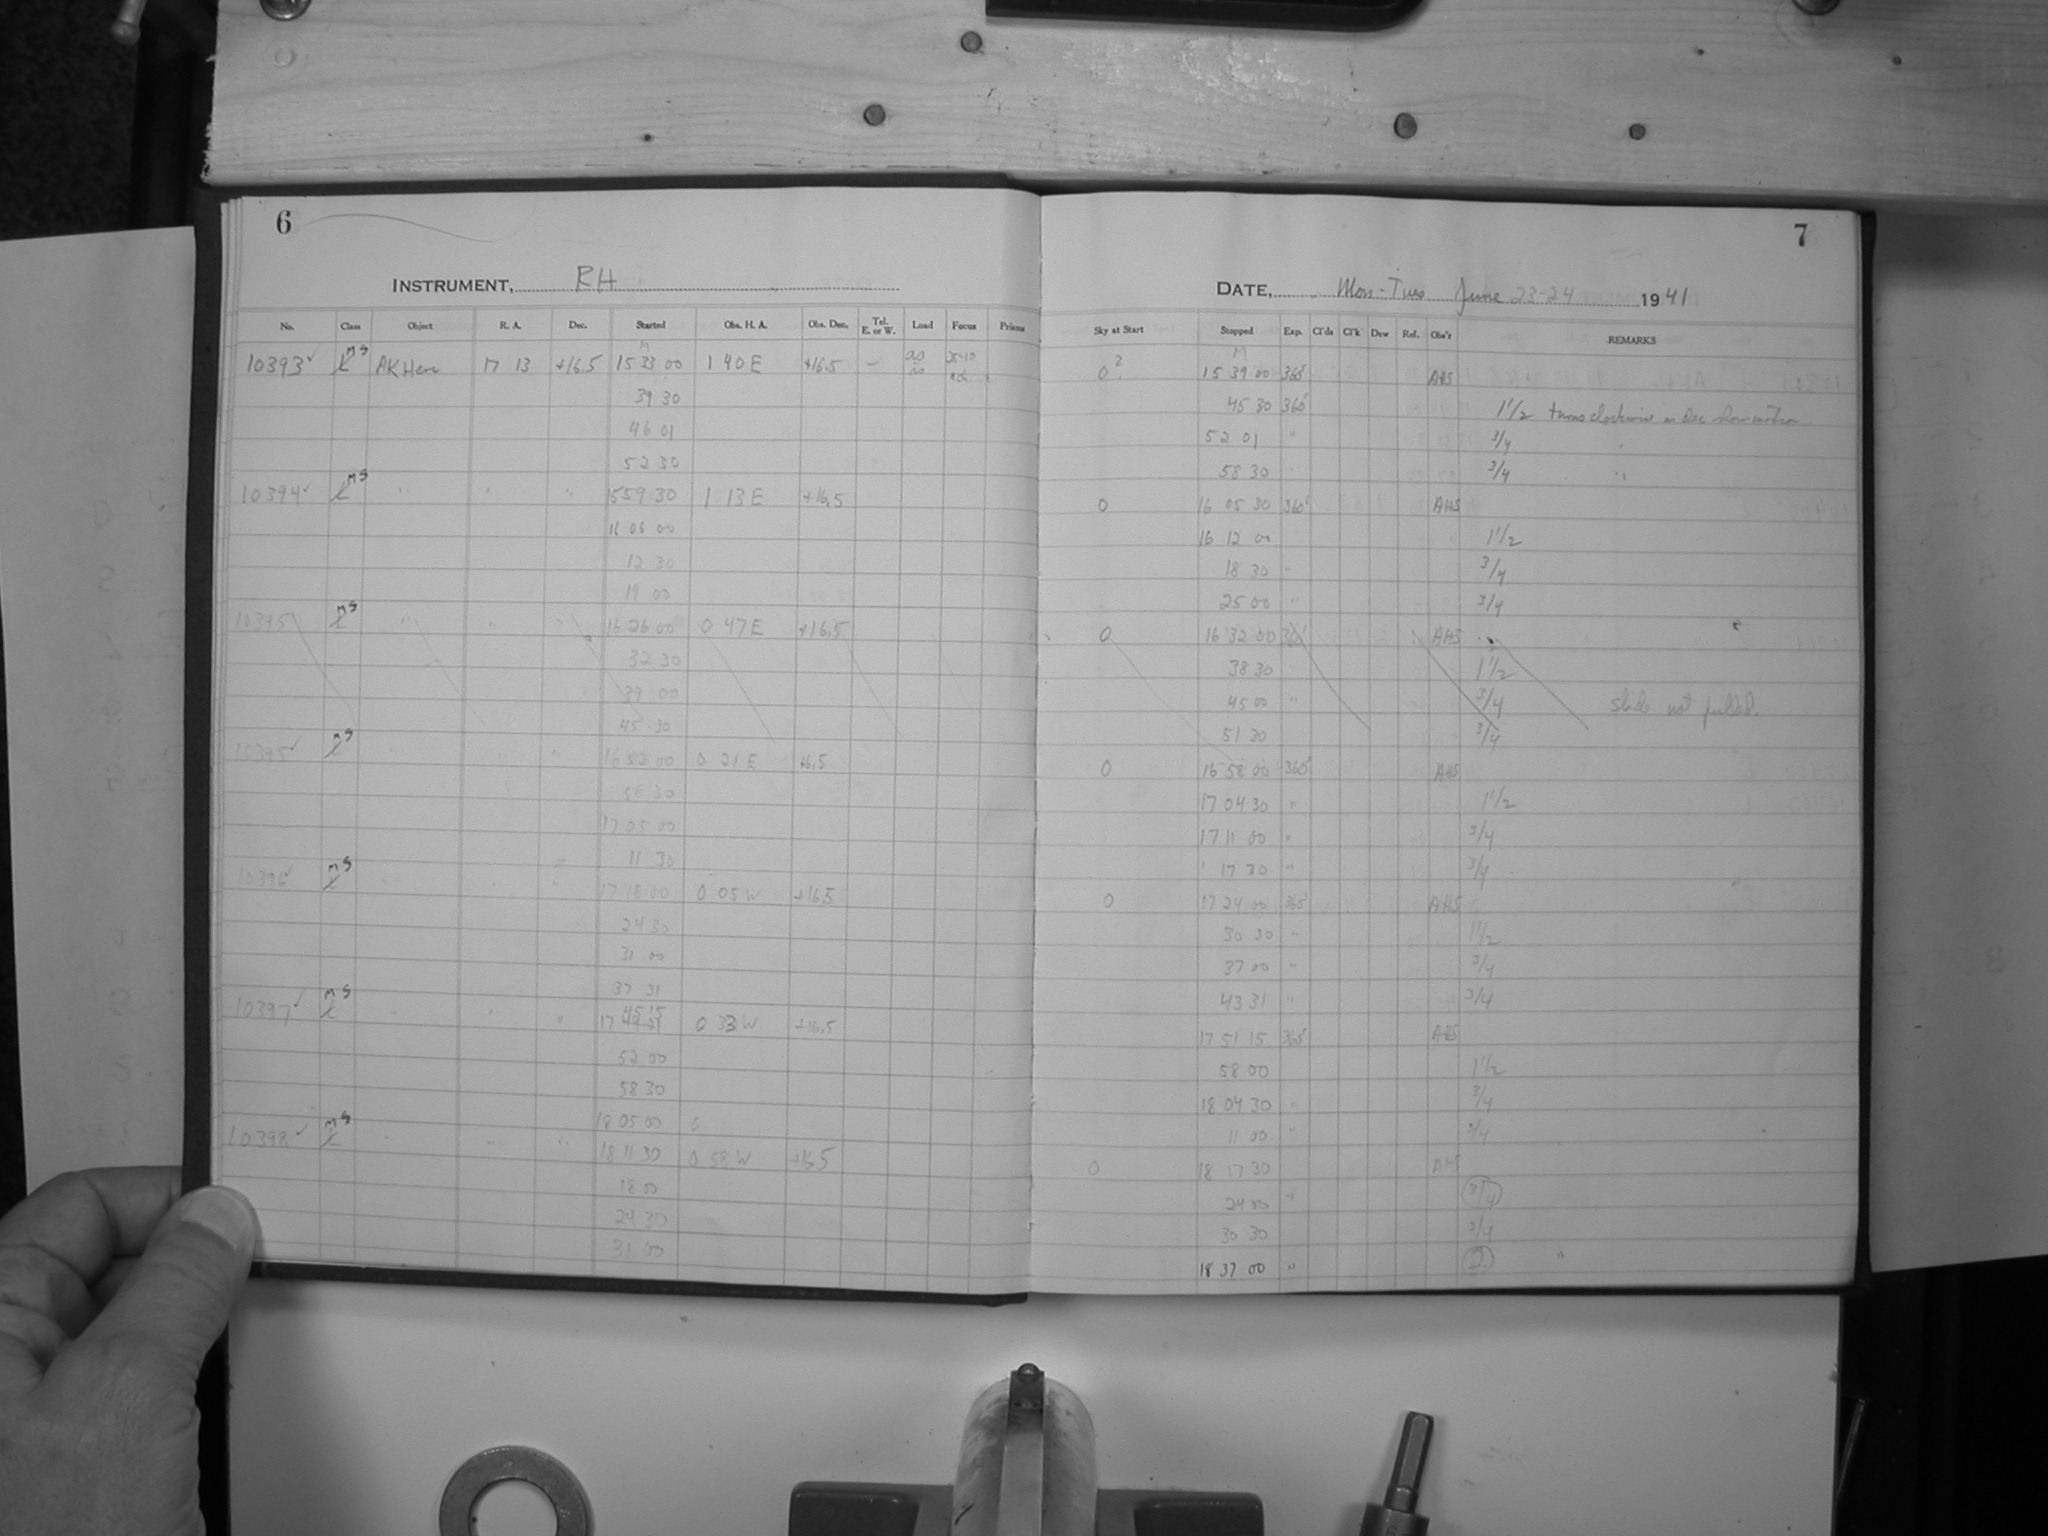 6
INSTRUMENT, RH
No. Class Object R. A. Dec. Started Obs. H. A. Obs. Dec. Tel. E. or W. Load Focus Prisms
M
10393 ✓ L MS AK Herc 17 13 +16.5 15 33 00 1 40 E +16.5 —
39 30
46 01
52 30
10394 ✓ L MS " " " 15 59 30 1 13 E +16.5
16 06 00
12 30
19 00
10395 L MS " " " 16 26 00 0 47 E +16.5
32 30
39 00
45 30
10395 ✓ L MS " " " 16 52 00 0 21 E +16.5
58 30
17 05 00
11 30
10396 ✓ L MS " " " 17 18 00 0 05 W +16.5
24 30
31 00
37 31
10397 ✓ L MS " " " 17 45 15 0 33 W +16.5
52 00
58 30
18 05 00
10398 ✓ L MS " " " 18 11 30 0 58 W +16.5
18 00
24 30
31 00
7
DATE, Mon-Tues June 23-24 1941
Sky at Start Stopped Exp. Cl'ds Cl'k Dew Ref. Obs'r REMARKS
M
0 ? 15 39 00 360 AHS
45 30 360 1 1/2 turns clockwise in Dec slow motion
52 01 " 3/4 "
58 30 " 3/4 "
0 16 05 30 360 AHS
16 12 00 1 1/2
18 30 " 3/4
25 00 " 3/4
0 16 32 00 360 AHS
38 30 1 1/2
45 00 " 3/4 slide not pulled.
51 30 3/4
0 16 58 00 360 AHS
17 04 30 " 1 1/2
17 11 00 " 3/4
17 30 " 3/4
0 17 24 00 360 AHS
30 30 " 1 1/2
37 00 " 3/4
43 31 " 3/4
17 51 15 360 AHS
58 00 1 1/2
18 04 30 " 3/4
11 00 " 3/4
0 18 17 30 AHS
24 00 " 3/4
30 30 3/4
18 37 00 " 2 "